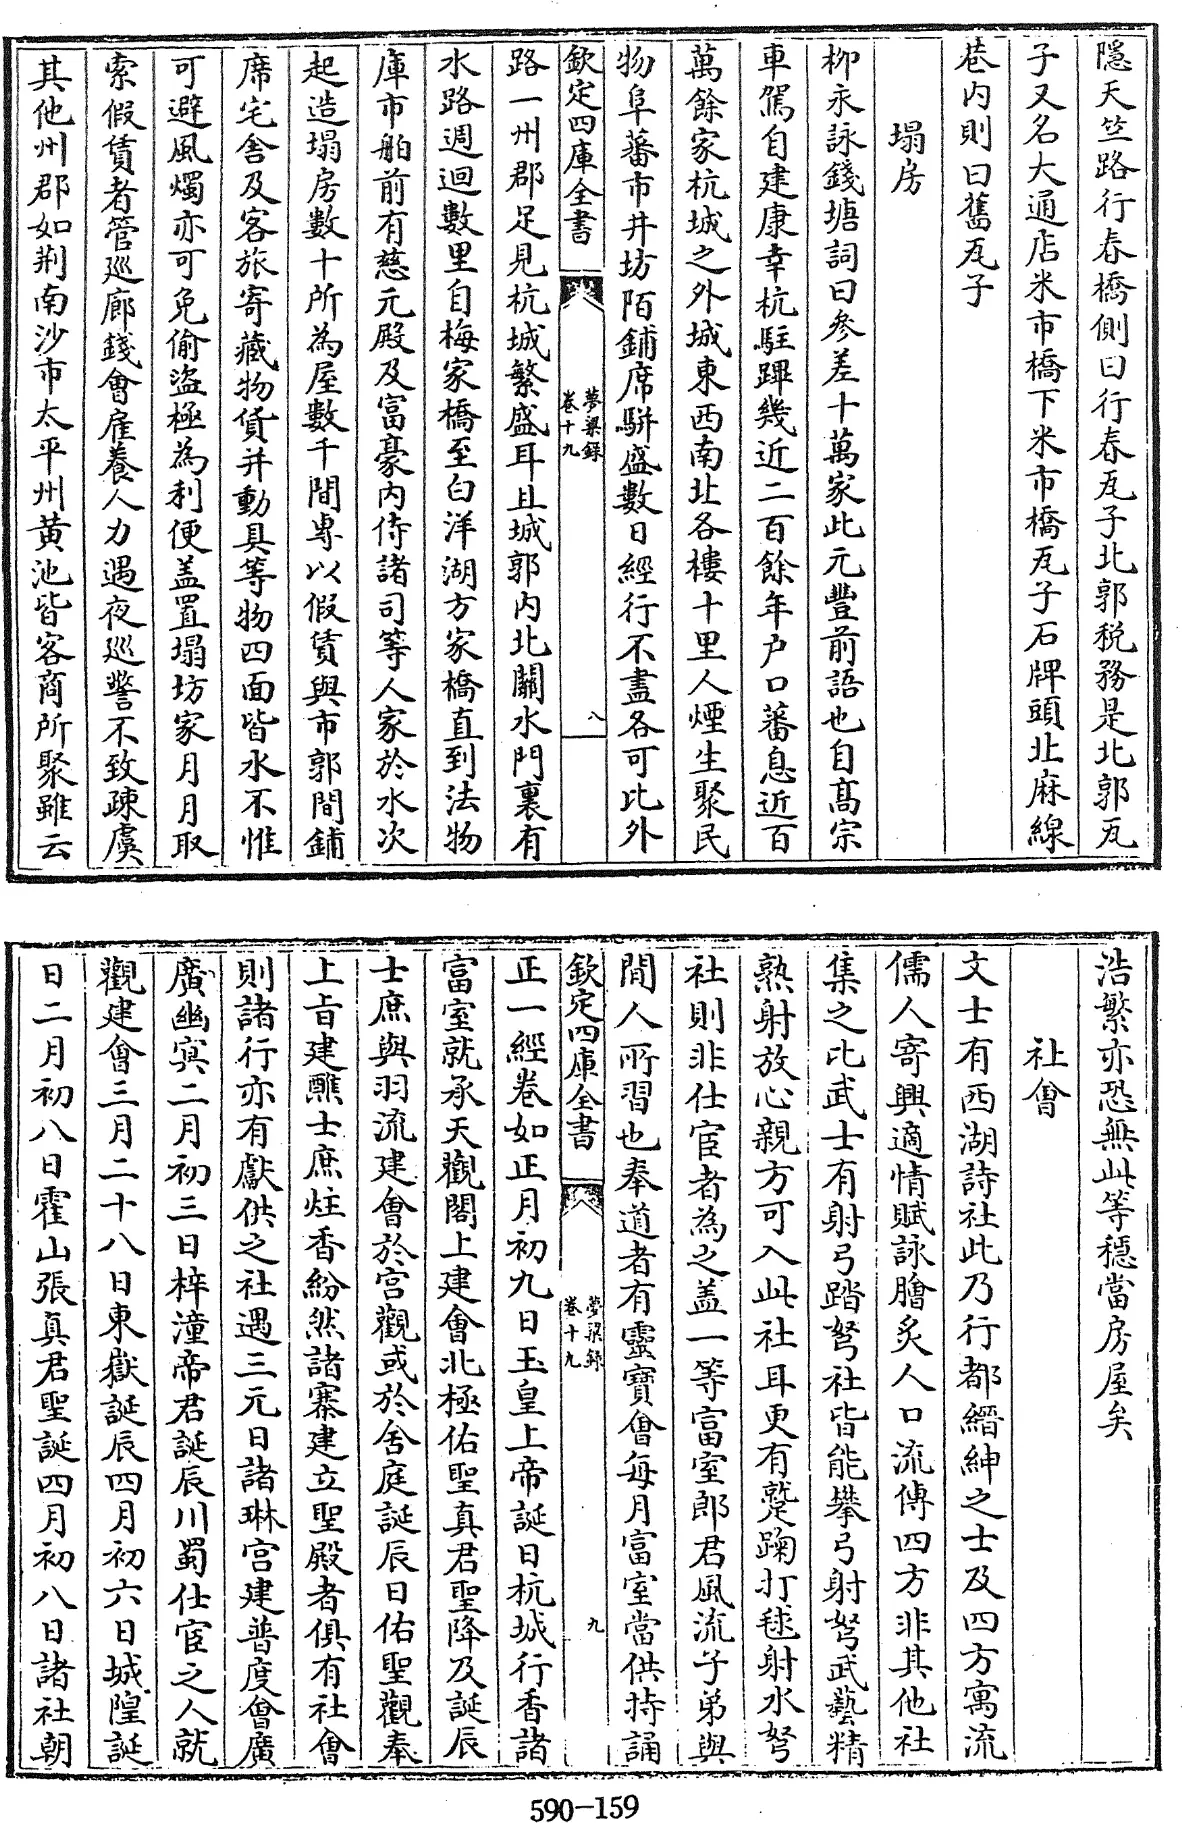 隱天竺路行春橋側曰行春瓦子北郭稅務是北郭瓦
子又名大通店米市橋下米市橋瓦子石牌頭北麻線
巷内則曰舊瓦子
塌房
柳永詠錢塘詞曰參差十萬家此元豐前語也自髙宗
車駕自建康幸杭駐蹕幾近二百餘年户口蕃息近百
萬餘家杭城之外城東西南北各樓十里人煙生聚民
物阜蕃市井坊陌鋪席駢盛數日經行不盡各可比外
欽定四庫全書
夢粱錄
卷十九
八
路一州郡足見杭城繁盛耳且城郭内北關水門裏有
水路週迴數里自梅家橋至白洋湖方家橋直到法物
庫市舶前有慈元殿及富豪内侍諸司等人家於水次
起造塌房數十所為屋數千間專以假賃與市郭間鋪
席宅舍及客旅寄藏物貨并動具等物四面皆水不惟
可避風燭亦可免偷盜極為利便盖置塌坊家月月取
索假賃者管巡廊錢會雇養人力遇夜巡警不致疎虞
其他州郡如荆南沙市太平州黄池皆客商所聚雖云
浩繁亦恐無此等穩當房屋矣
社會
文士有西湖詩社此乃行都縉紳之士及四方寓流
儒人寄興適情賦詠膾炙人口流傳四方非其他社
集之比武士有射弓踏弩社皆能攀弓射弩武藝精
熟射放心親方可入此社耳更有蹴踘打毬射水弩
社則非仕宦者為之盖一等富室郎君風流子弟與
閒人所習也奉道者有靈寶會每月富室當供持誦
欽定四庫全書
夢粱錄
卷十九
九
正一經卷如正月初九日玉皇上帝誕日杭城行香諸
富室就承天觀閣上建會北極佑聖真君聖降及誕辰
士庶與羽流建會於宫觀或於舍庭誕辰日佑聖觀奉
上旨建醮士庶炷香紛然諸寨建立聖殿者俱有社會
則諸行亦有獻供之社遇三元日諸琳宫建普度會廣
廣幽㝠二月初三日梓潼帝君誕辰川蜀仕宦之人就
觀建會三月二十八日東嶽誕辰四月初六日城隍誕
日二月初八日霍山張真君聖誕四月初八日諸社朝
590-159